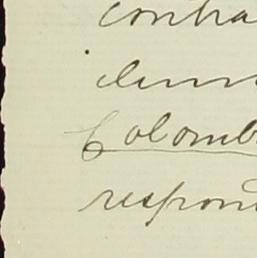 contra
Colomb
respon